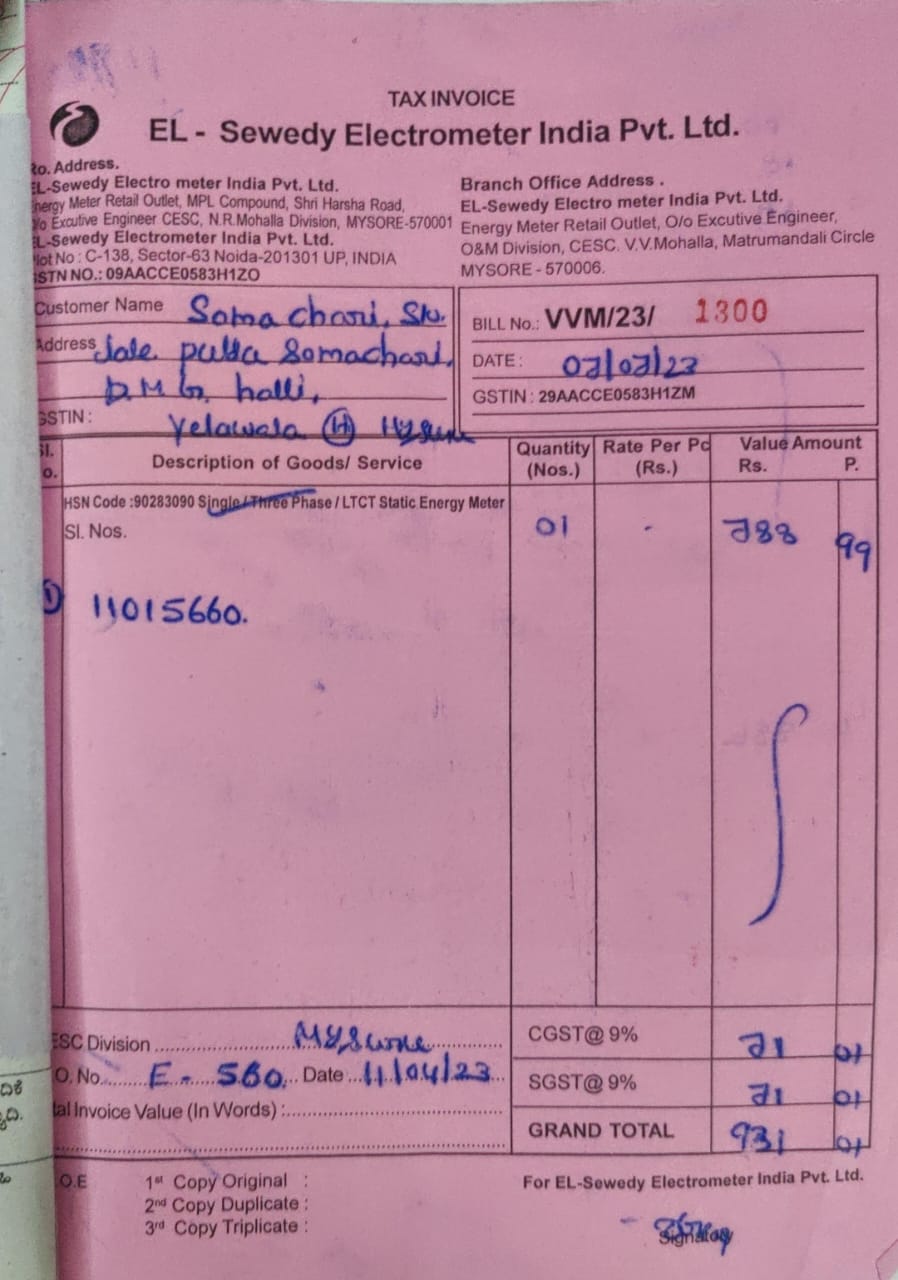 TAX INVOICE
EL - Sewedy Electrometer India Pvt. Ltd.
Ro. Address.
EL-Sewedy Electro meter India Pvt. Ltd.
Energy Meter Retail Outlet, MPL Compound, Shri Harsha Road,
O/o Excutive Engineer CESC, N.R.Mohalla Division, MYSORE-570001
EL-Sewedy Electrometer India Pvt. Ltd.
Plot No : C-138, Sector-63 Noida-201301 UP, INDIA
GSTN NO.: 09AACCE0583H1ZO
Branch Office Address .
EL-Sewedy Electro meter India Pvt. Ltd.
Energy Meter Retail Outlet, O/o Excutive Engineer,
O&M Division, CESC. V.V.Mohalla, Matrumandali Circle
MYSORE - 570006.
Customer Name Somachari,
Address Somachari,
D.M.G. halli,
GSTIN : Yelawala (H)
BILL No.: VVM/23/ 1300
DATE : 07/07/23
GSTIN : 29AACCE0583H1ZM
Sl. No. Description of Goods/ Service Quantity (Nos.) Rate Per Pc (Rs.) Value Amount Rs. P.
HSN Code :90283090 Single / Three Phase / LTCT Static Energy Meter
Sl. Nos. 01 - 788 99
1) 11015660.
CESC Division Mysore
O. No. E - 560 Date 11/04/23
Total Invoice Value (In Words) :
CGST@ 9% 71 01
SGST@ 9% 71 01
GRAND TOTAL 931 01
O.E
1st Copy Original :
2nd Copy Duplicate :
3rd Copy Triplicate :
For EL-Sewedy Electrometer India Pvt. Ltd.
Signatory